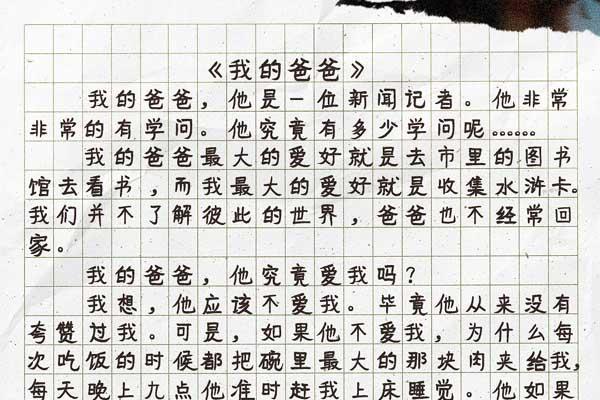 《我的爸爸》
我的爸爸，他是一位新闻记者。他非常
非常的有学问。他究竟有多少学问呢……
我的爸爸最大的爱好就是去市里的图书
馆去看书，而我最大的爱好就是收集水浒卡。
我们并不了解彼此的世界，爸爸也不经常回
家。
我的爸爸，他究竟爱我吗？
我想，他应该不爱我。毕竟他从来没有
夸赞过我。可是，如果他不爱我，为什么每
次吃饭的时候都把碗里最大的那块肉夹给我，
每天晚上九点他准时赶我上床睡觉。他如果